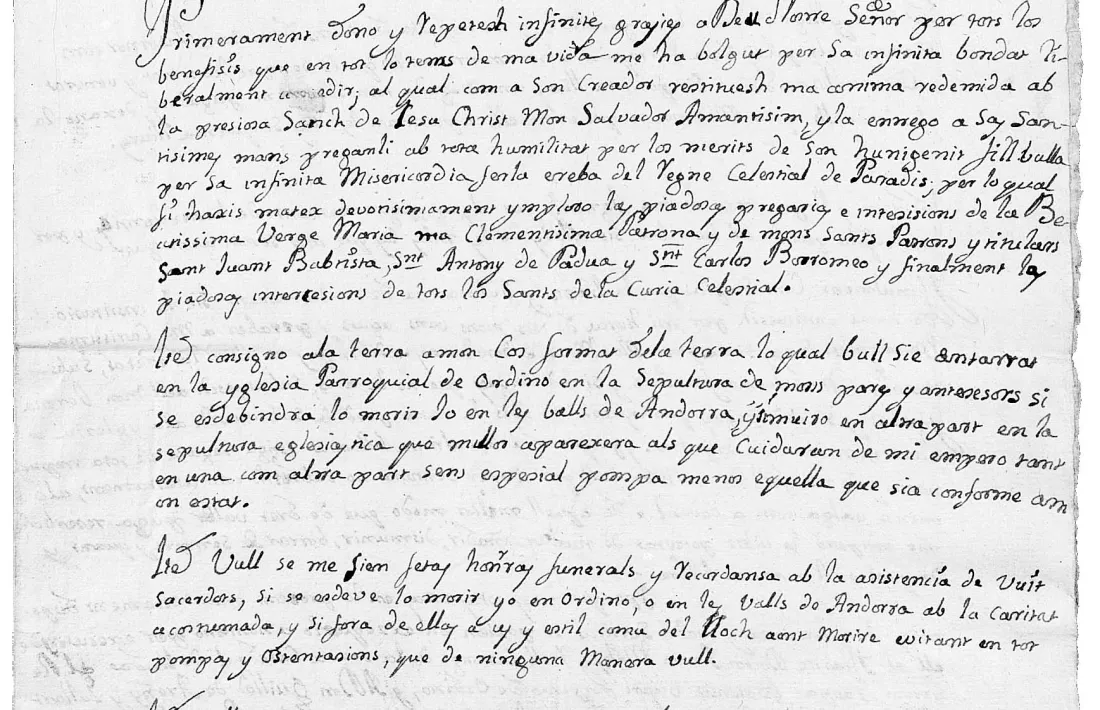 Primerament dono y repetesh infinites grasies a Deu Nonre Señor per tots los
benefisis que en tot lo tems de ma vida me ha bolgut per Sa infinita bondat li-
beralment consedir; al qual com a Son Creador restituesh ma anima redemida ab
la presiosa Sanch de Iesu Christ Mon Salvador Amantisim, y la enrego a Sas San-
tisimes mans preganli ab tota humilitat per los merits de Son hunigenit fill bulla
per Sa infinita Misericordia ferla ereba del Regne Celestial de Paradis; per lo qual
fi haxis matex devotisimament ymploro las piadosas pregarias e intersisions de la Be-
atissima Verge Maria ma Clementisima Patrona y de mons Sants Patrons y titulars
Sant Juant Babtista, Snt Antony de Padua y Snt Carlos Borromeo y finalment las
piadosas intercesions de tots los Sants de la Curia Celestial.
Ite consigno a la terra a mon Cos format de la terra lo qual bull Sie antarrat
en la yglesia Parroquial de Ordino en la Sepultura de mons pares y antesesors si
se esdebindra lo morir Jo en les balls de Andorra, y si muiro en altra part en la
sepultura eglesiastica que millor aparexera als que Cuidaran de mi empero tant
en una com altra part sens espesial pompa menos equella que sia conforme a m
on estat.
Ite Vull se me sien fetas honrras funerals y recordansa ab la asistencia de Vuit
sacerdots, si se esdeve lo morir yo en Ordino, o en les Valls de Andorra ab la Caritat
acostumada, y si fora de ellas a us y estil coma del lloch aont Morire evitant en tot
pompas y ostentasions, que de ninguna Manera vull.